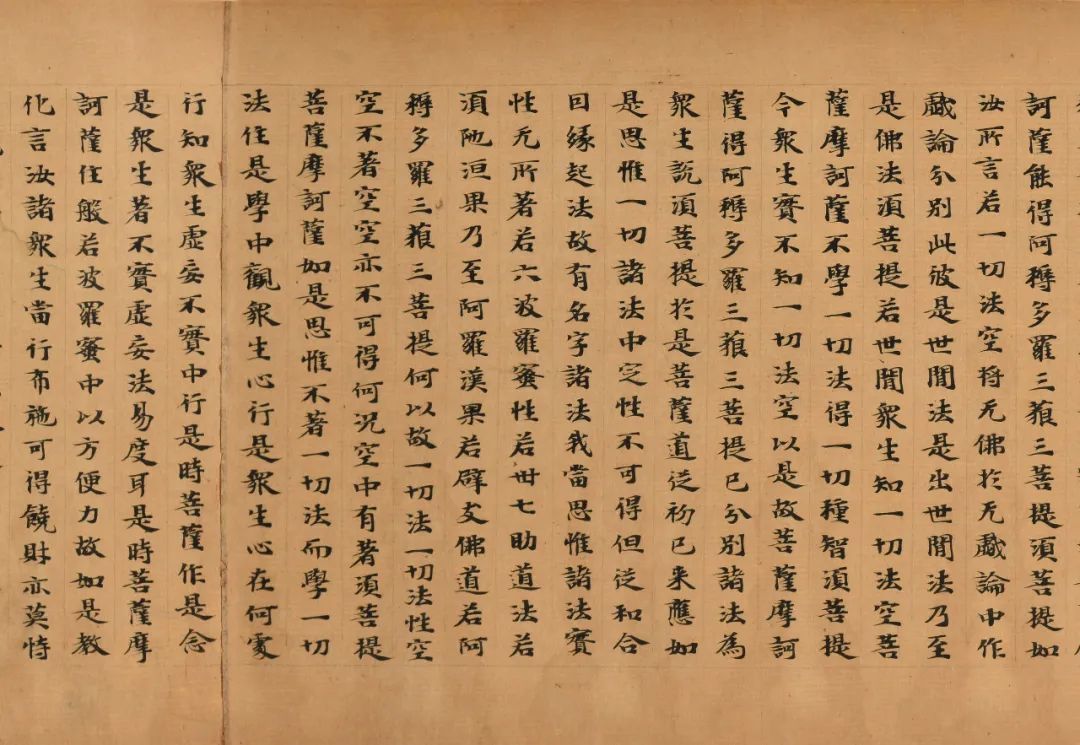 訶薩能得阿耨多羅三藐三菩提須菩提如
汝所言若一切法空将无佛於无戲論中作
戲論分別此彼是世間法是出世間法乃至
是佛法須菩提若世間衆生知一切法空菩
薩摩訶薩不學一切法得一切種智須菩提
今衆生實不知一切法空以是故菩薩摩訶
薩得阿耨多羅三藐三菩提已分別諸法為
衆生說須菩提於是菩薩道従初已来應如
是思惟一切諸法中定性不可得但従和合
因縁起法故有名字諸法我當思惟諸法實
性无所著若六波羅蜜性若卅七助道法若
須陁洹果乃至阿羅漢果若辟支佛道若阿
耨多羅三藐三菩提何以故一切法一切法性空
空不著空空亦不可得何況空中有著須菩提
菩薩摩訶薩如是思惟不著一切法而學一切
法住是學中觀衆生心行是衆生心在何處
行知衆生虛妄不實中行是時菩薩作是念
是衆生著不實虛妄法易度耳是時菩薩摩
訶薩住般若波羅蜜中以方便力故如是教
化言汝諸衆生當行布施可得饒財亦莫恃